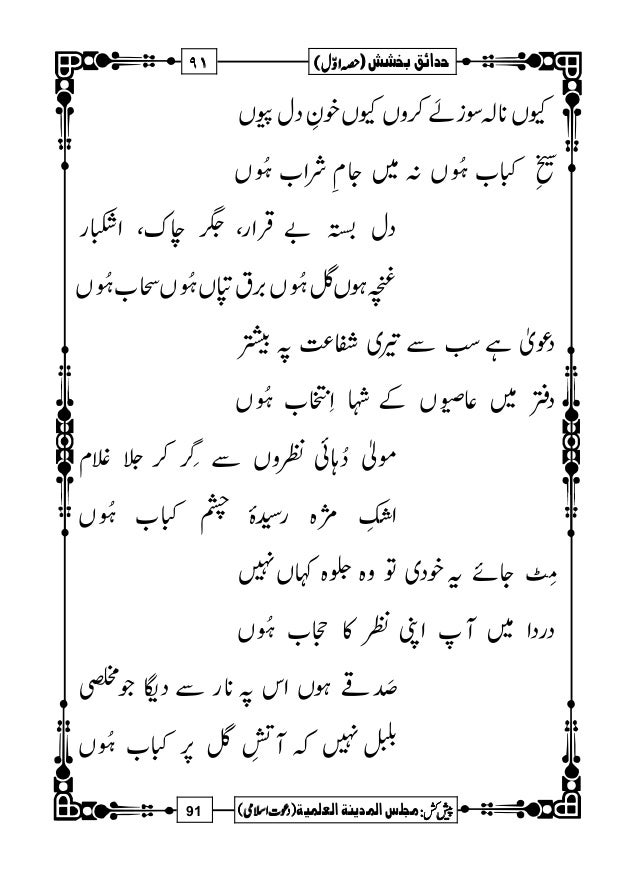 حدائق بخشش (حصہ اوّل)
۹۱
کیوں نالہ سوز لے کروں کیوں خونِ دل پیوں
سیخِ کباب ہُوں نہ میں جامِ شراب ہُوں
دل بستہ بے قرار، جگر چاک، اشکبار
غنچہ ہوں گل ہُوں برق تپاں ہُوں سحاب ہُوں
دعویٰ ہے سب سے تیری شفاعت پہ بیشتر
دفتر میں عاصیوں کے شہا اِنتخاب ہُوں
مولیٰ دُہائی نظروں سے گِر کر جلا غلام
اشکِ مژہ رسیدۂ چشم کباب ہُوں
مِٹ جائے یہ خودی تو وہ جلوہ کہاں نہیں
دردا میں آپ اپنی نظر کا حجاب ہُوں
صَدقے ہوں اس پہ نار سے دیگا جو مخلصی
بلبل نہیں کہ آتشِ گل پر کباب ہُوں
پیش کش: مجلس المدینة العلمیة (دعوتِ اسلامی)
91